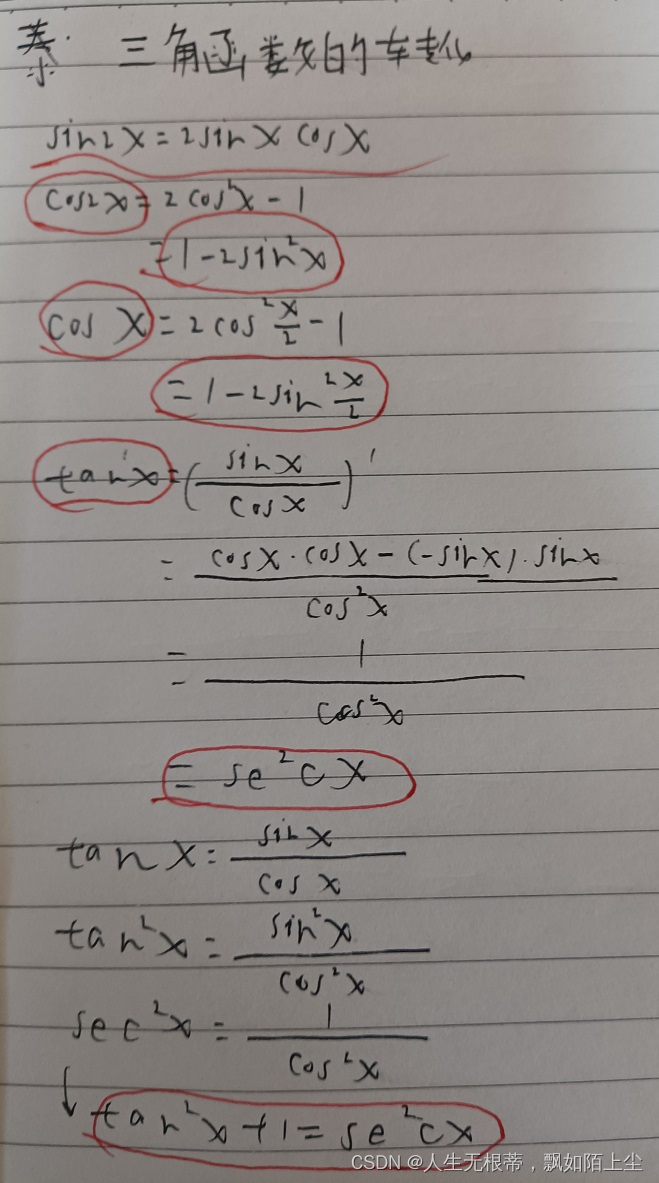 三角函数的转化
sin2x=2sinx cosx
cos2x=2cos²x-1
=1-2sin²x
cosx=2cos²x/2-1
=1-2sin²x/2
tan'x=(sinx/cosx)'
=cosx·cosx-(-sinx)·sinx/cos²x
=1/cos²x
=se²cx
tanx=sinx/cosx
tan²x=sin²x/cos²x
sec²x=1/cos²x
↓tan²x+1=se²cx
CSDN @人生无根蒂，飘如陌上尘